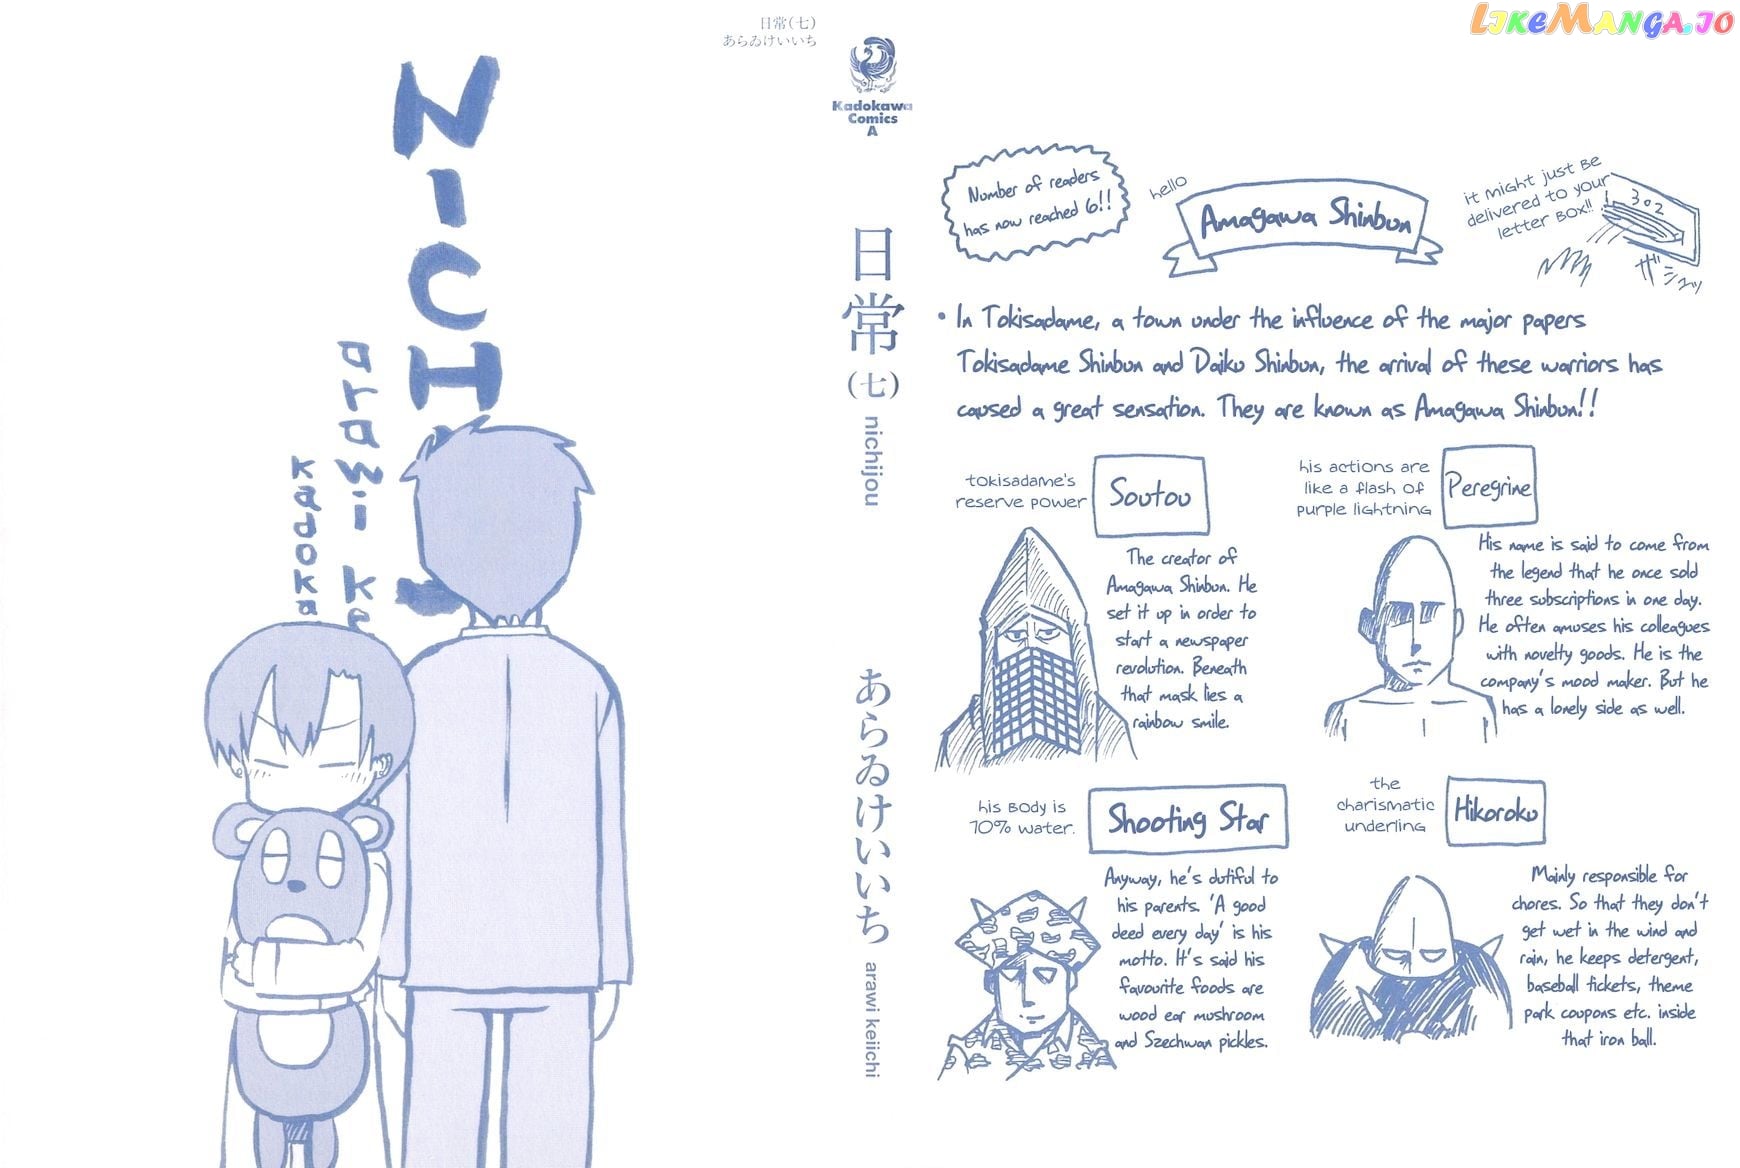 LIKEMANGA.IO
日常(七)
あらゐけいいち
Kadokawa
Comics
A
NICHIJ
arawi ke
kadoka
日常
(七)
nichijou
あらゐけいいち
arawi keiichi
Number of readers
has now reached 6!!
hello
Amagawa Shinbun
it might just be
delivered to your
letter box!!
302
ガシュッ
• In Tokisadame, a town under the influence of the major papers
Tokisadame Shinbun and Daiku Shinbun, the arrival of these warriors has
caused a great sensation. They are known as Amagawa Shinbun!!
tokisadame's
reserve power
Soutou
The creator of
Amagawa Shinbun. He
set it up in order to
start a newspaper
revolution. Beneath
that mask lies a
rainbow smile.
his actions are
like a flash of
purple lightning
Peregrine
His name is said to come from
the legend that he once sold
three subscriptions in one day.
He often amuses his colleagues
with novelty goods. He is the
company's mood maker. But he
has a lonely side as well.
his body is
70% water.
Shooting Star
Anyway, he's dutiful to
his parents. 'A good
deed every day' is his
motto. It's said his
favourite foods are
wood ear mushroom
and Szechwan pickles.
the
charismatic
underling
Hikoroku
Mainly responsible for
chores. So that they don't
get wet in the wind and
rain, he keeps detergent,
baseball tickets, theme
park coupons etc. inside
that iron ball.